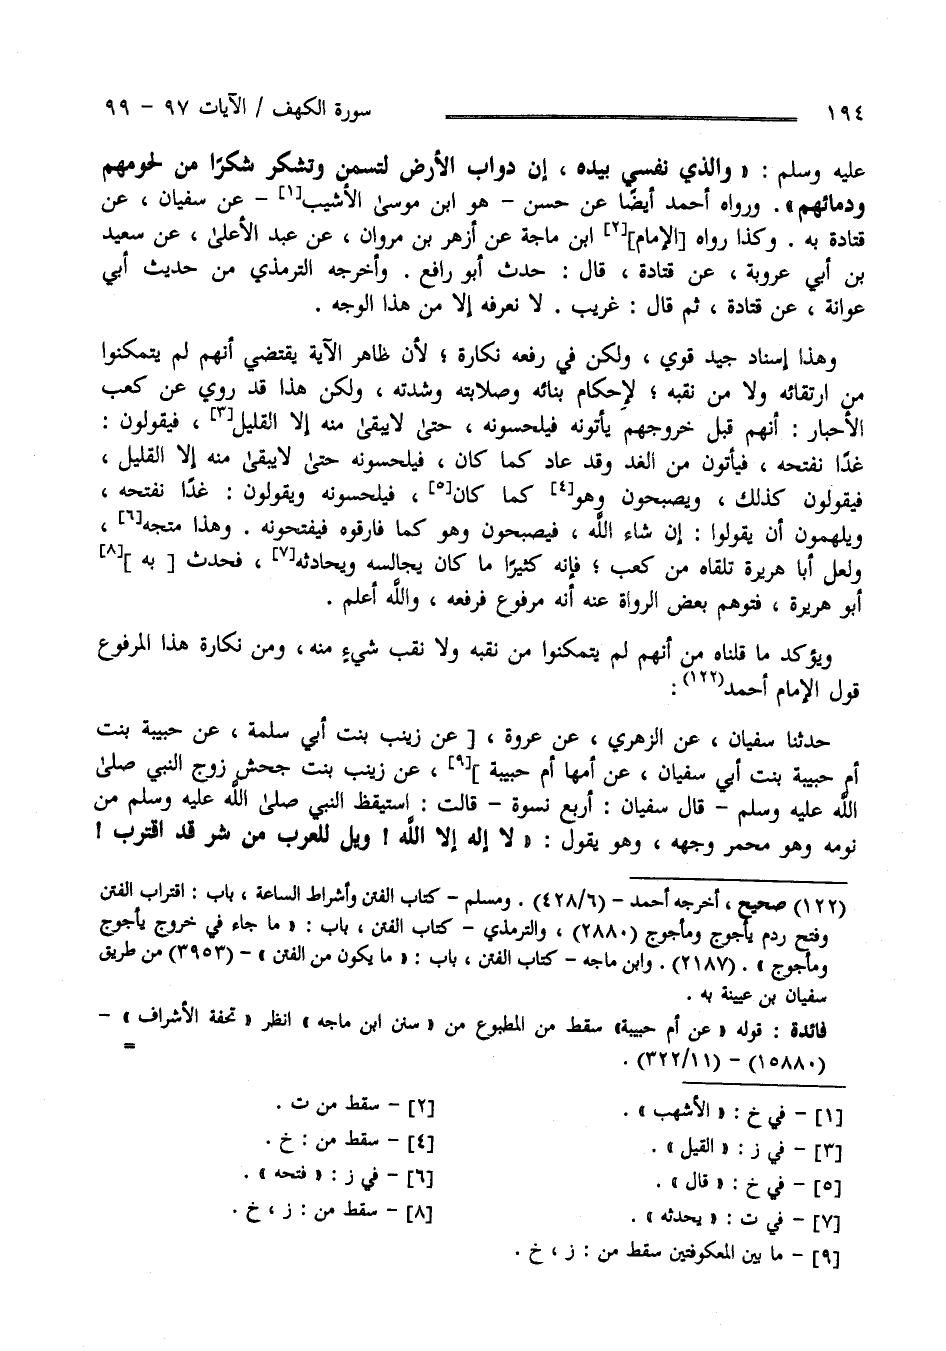 ١٩٤ ــــــــــــــــــــــــ سورة الكهف / الآيات ٩٧ - ٩٩
عليه وسلم : « والذي نفسي بيده ، إن دواب الأرض لتسمن وتشكر شكرًا من لحومهم
ودمائهم». ورواه أحمد أيضًا عن حسن - هو ابن موسىٰ الأشيب[١] - عن سفيان ، عن
قتادة به . وكذا رواه [الإمام][٢] ابن ماجة عن أزهر بن مروان ، عن عبد الأعلىٰ ، عن سعيد
بن أبي عروبة ، عن قتادة ، قال : حدث أبو رافع . وأخرجه الترمذي من حديث أبي
عوانة ، عن قتادة ، ثم قال : غريب . لا نعرفه إلا من هذا الوجه .
وهذا إسناد جيد قوي ، ولكن في رفعه نكارة ؛ لأن ظاهر الآية يقتضي أنهم لم يتمكنوا
من ارتقائه ولا من نقبه ؛ لإحكام بنائه وصلابته وشدته ، ولكن هذا قد روي عن كعب
الأحبار : أنهم قبل خروجهم يأتونه فيلحسونه ، حتىٰ لايبقىٰ منه إلا القليل[٣] ، فيقولون :
غدًا نفتحه ، فيأتون من الغد وقد عاد كما كان ، فيلحسونه حتىٰ لايبقىٰ منه إلا القليل ،
فيقولون كذلك ، ويصبحون وهو[٤] كما كان[٥] ، فيلحسونه ويقولون : غدًا نفتحه ،
ويلهمون أن يقولوا : إن شاء اللَّه ، فيصبحون وهو كما فارقوه فيفتحونه . وهذا متجه[٦] ،
ولعل أبا هريرة تلقاه من كعب ؛ فإنه كثيرًا ما كان يجالسه ويحادثه[٧] ، فحدث [ به ][٨]
أبو هريرة ، فتوهم بعض الرواة عنه أنه مرفوع فرفعه ، واللَّه أعلم .
ويؤكد ما قلناه من أنهم لم يتمكنوا من نقبه ولا نقب شيءٍ منه، ومن نكارة هذا المرفوع
قول الإمام أحمد(١٢٢):
حدثنا سفيان ، عن الزهري ، عن عروة ، [ عن زينب بنت أبي سلمة ، عن حبيبة بنت
أم حبيبة بنت أبي سفيان ، عن أمها أم حبيبة ][٩] ، عن زينب بنت جحش زوج النبي صلىٰ
اللَّه عليه وسلم - قال سفيان : أربع نسوة - قالت : استيقظ النبي صلىٰ اللَّه عليه وسلم من
نومه وهو محمر وجهه ، وهو يقول : « لا إله إلا اللَّه ! ويل للعرب من شر قد اقترب !
(١٢٢) صحيح ، أخرجه أحمد - (٤٢٨/٦) . ومسلم - كتاب الفتن وأشراط الساعة ، باب : اقتراب الفتن
وفتح ردم يأجوج ومأجوج (٢٨٨٠) ، والترمذي - كتاب الفتن ، باب : « ما جاء في خروج يأجوج
ومأجوج » . (٢١٨٧) . وابن ماجه - كتاب الفتن ، باب : « ما يكون من الفتن » - (٣٩٥٣) من طريق
سفيان بن عيينة به .
فائدة : قوله « عن أم حبيبة» سقط من المطبوع من « سنن ابن ماجه » انظر « تحفة الأشراف » -
(١٥٨٨٠) - (٣٢٢/١١) . =
[١] - في خ : « الأشهب » . [٢] - سقط من ت .
[٣] - في ز : « القيل » . [٤] - سقط من : خ .
[٥] - في خ : « قال » . [٦] - في ز : « فتحه » .
[٧] - في ت : « يحدثه » . [٨] - سقط من : ز ، خ .
[٩] - ما بين المعكوفتين سقط من : ز ، خ .